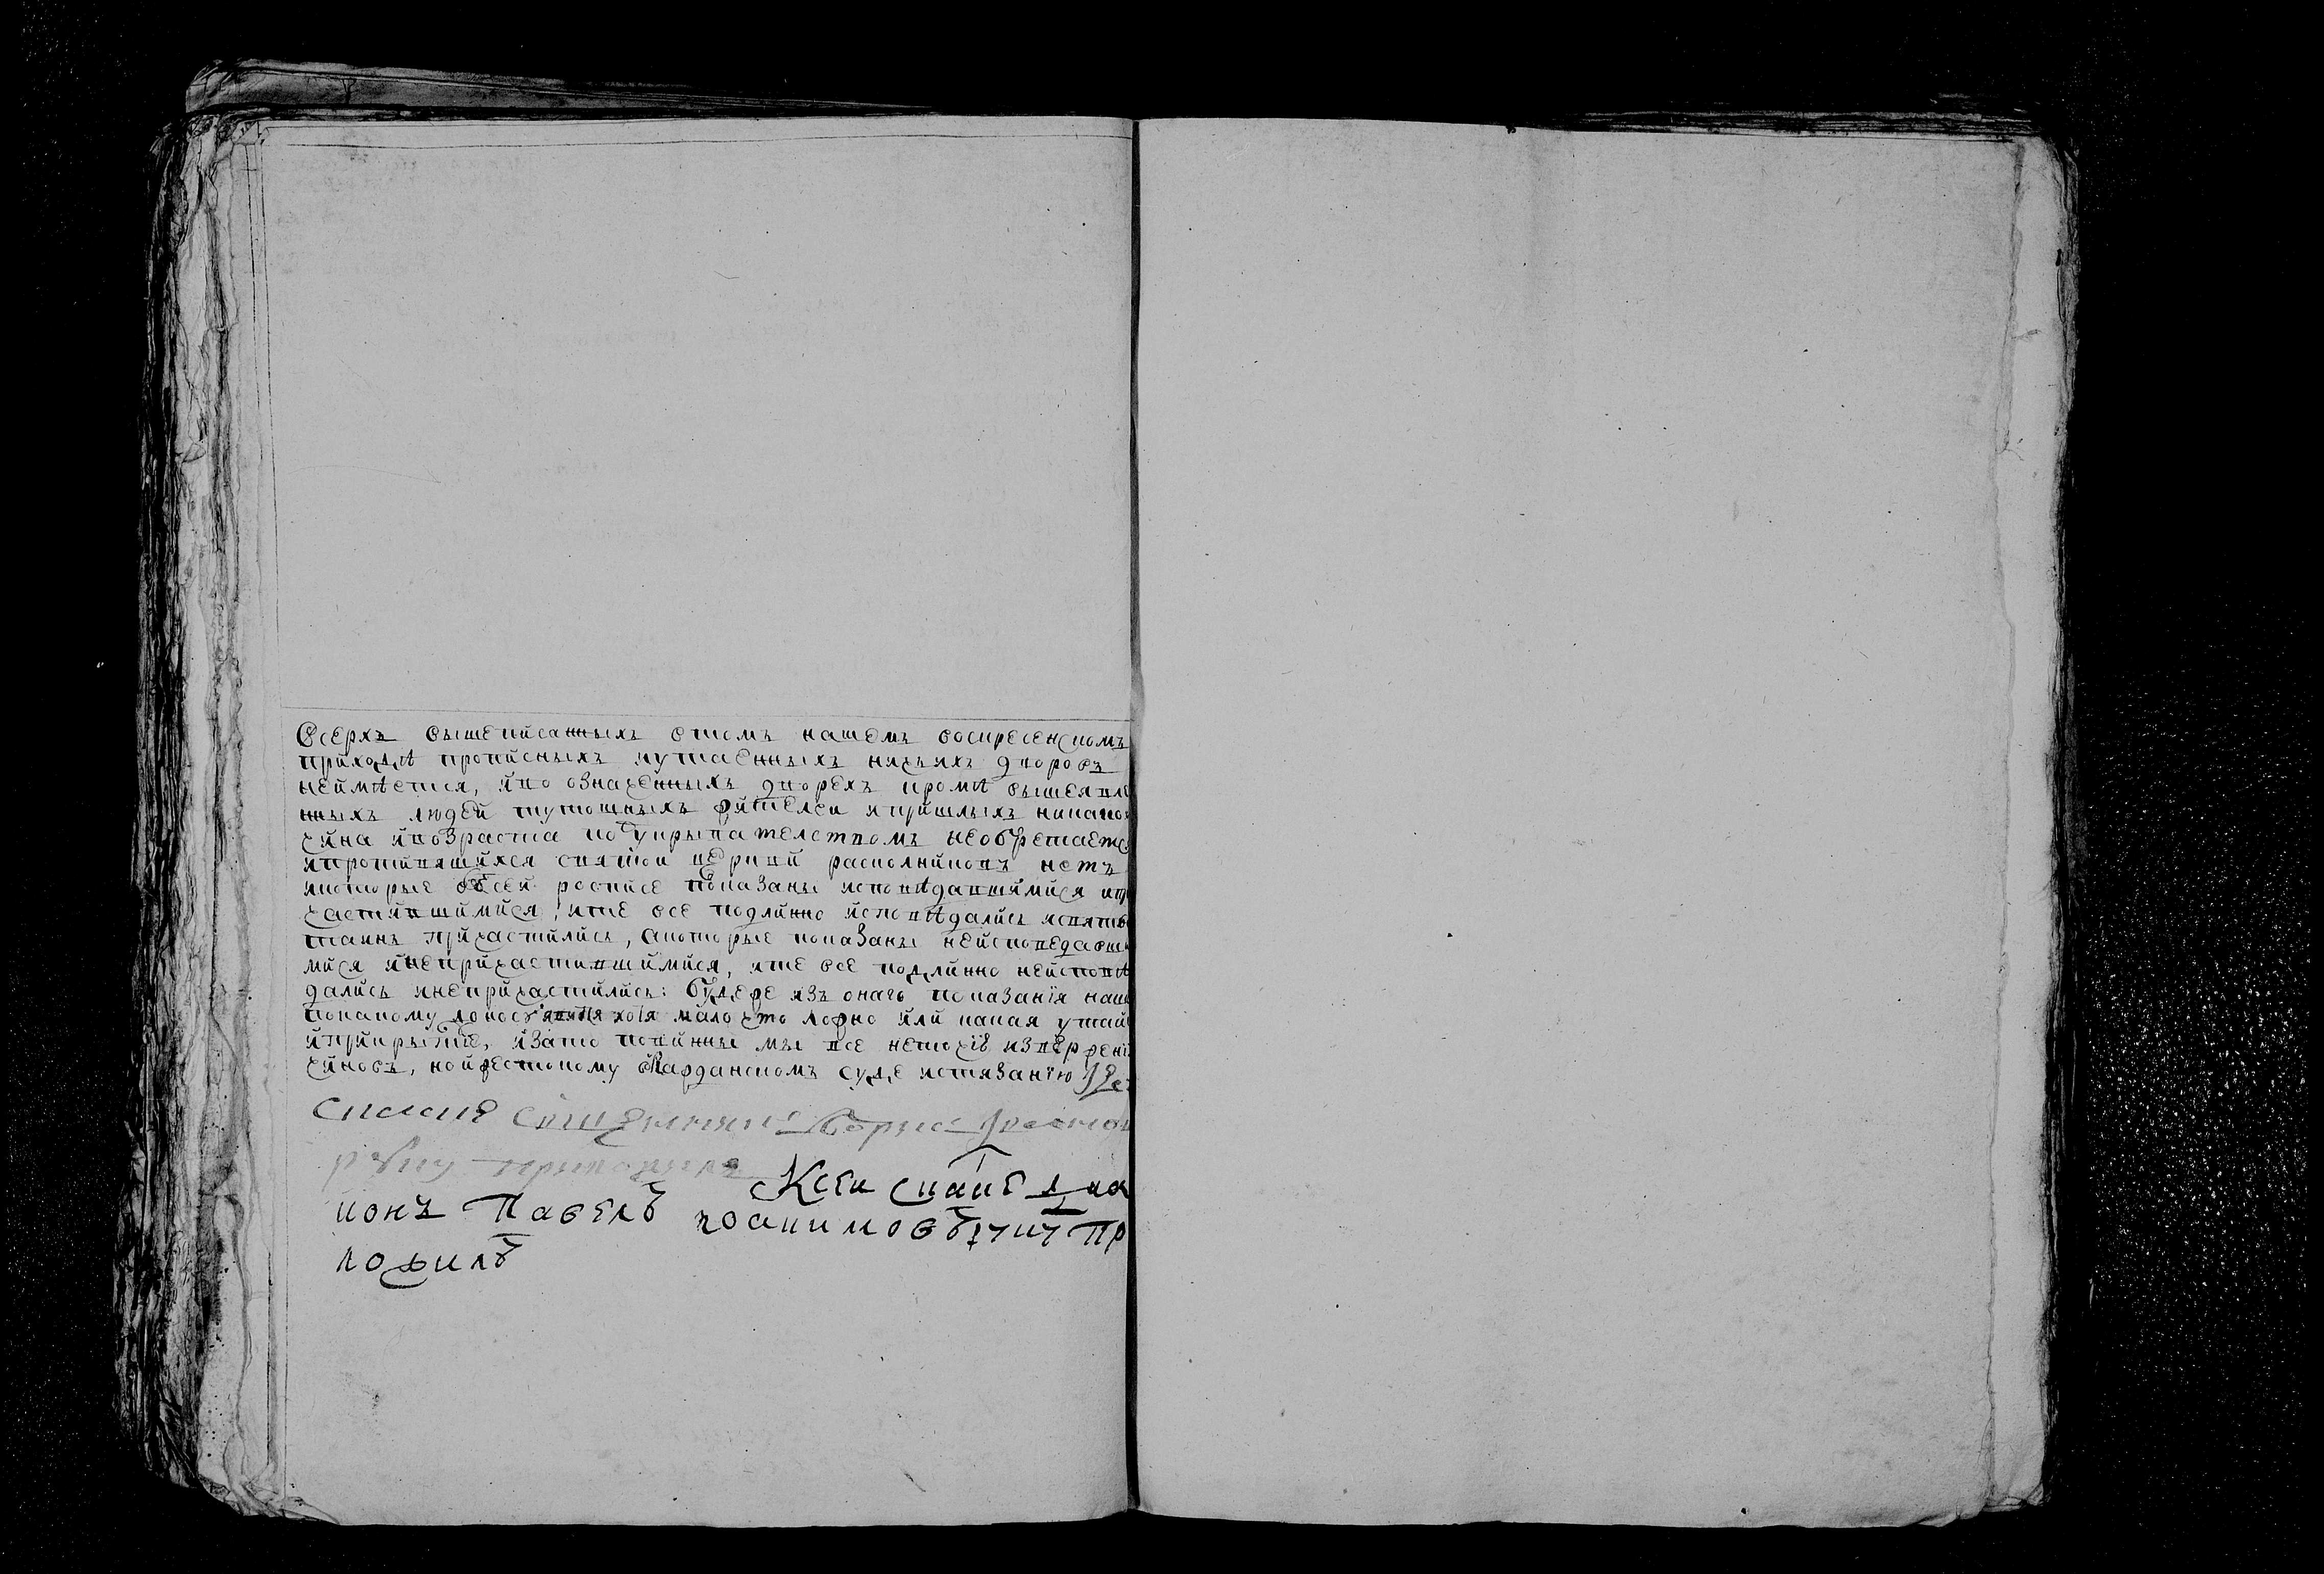 Всерхъ вышеписанныхъ втомъ нашемъ воскресенскомъ
приходѣ прописныхъ иутаенныхъ ничьихъ дворовъ
неимѣется, иво означенныхъ дворехъ кромѣ вышеявле
нныхъ людей тутошныхъ жителеи ипришлыхъ никаког
чина ивозраста по укрывателством необретаетс
ипротивящихся святой церкви расколниковъ нетъ
икоторые всеи росписе показаны исповѣдавшимися ипр
частившимися, ите все подлинно исповѣдались исвяты
таинъ причастились, акоторые показаны неисповедавши
мися инепричастившимися, ите все подлинно неисповѣ
дались инепричастились: будеже изъ онаго показания наш
покакому доносу явится хотя мало что ложно или какая утай
иприкрытие, изато повинны мы все неточiю извержени
чиновъ, ножестокому гражданскомъ суде истязанию
сказке священникъ Борис
руку приложилъ
Ксеи скаске дья
конъ Павелъ иоакимовъ руку пр
ложилъ